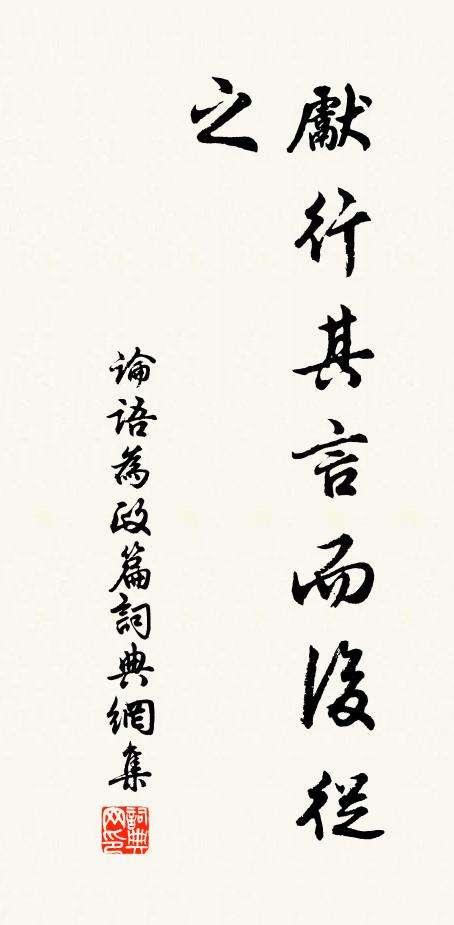 獻行其言而後從
之
論語為政篇詞典網集
詞典
网印